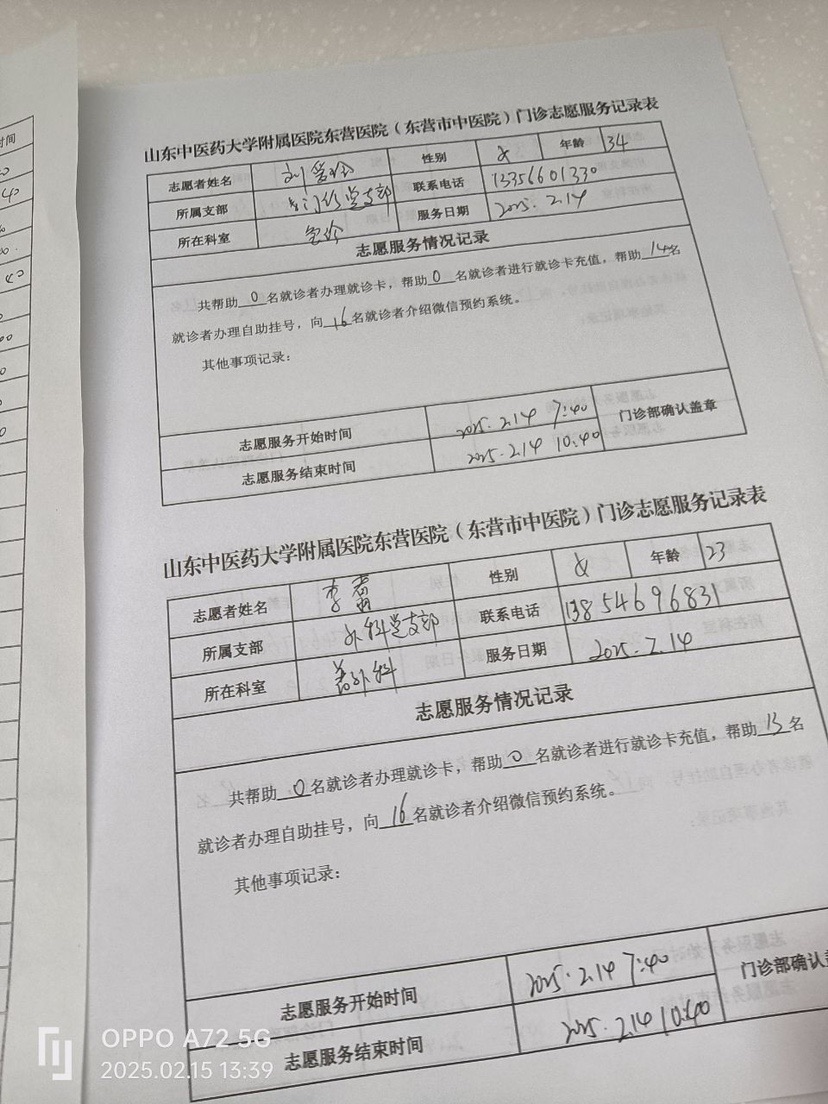 时间
40
山东中医药大学附属医院东营医院（东营市中医院）门诊志愿服务记录表
志愿者姓名 刘 性别 女 年龄 34
所属支部 门诊党支部 联系电话 13356601330
所在科室 急诊 服务日期 2025.2.14
志愿服务情况记录
共帮助 0 名就诊者办理就诊卡，帮助 0 名就诊者进行就诊卡充值，帮助 14 名
就诊者办理自助挂号，向 16 名就诊者介绍微信预约系统。
其他事项记录：
志愿服务开始时间 2025.2.14 7:40 门诊部确认盖章
志愿服务结束时间 2025.2.14 10:40
山东中医药大学附属医院东营医院（东营市中医院）门诊志愿服务记录表
志愿者姓名 李 性别 女 年龄 23
所属支部 外科党支部 联系电话 13854696831
所在科室 外科 服务日期 2025.2.14
志愿服务情况记录
共帮助 0 名就诊者办理就诊卡，帮助 0 名就诊者进行就诊卡充值，帮助 15 名
就诊者办理自助挂号，向 16 名就诊者介绍微信预约系统。
其他事项记录：
志愿服务开始时间 2025.2.14 7:40 门诊部确认
志愿服务结束时间 2025.2.14 10:40
OPPO A72 5G
2025.02.15 13:39